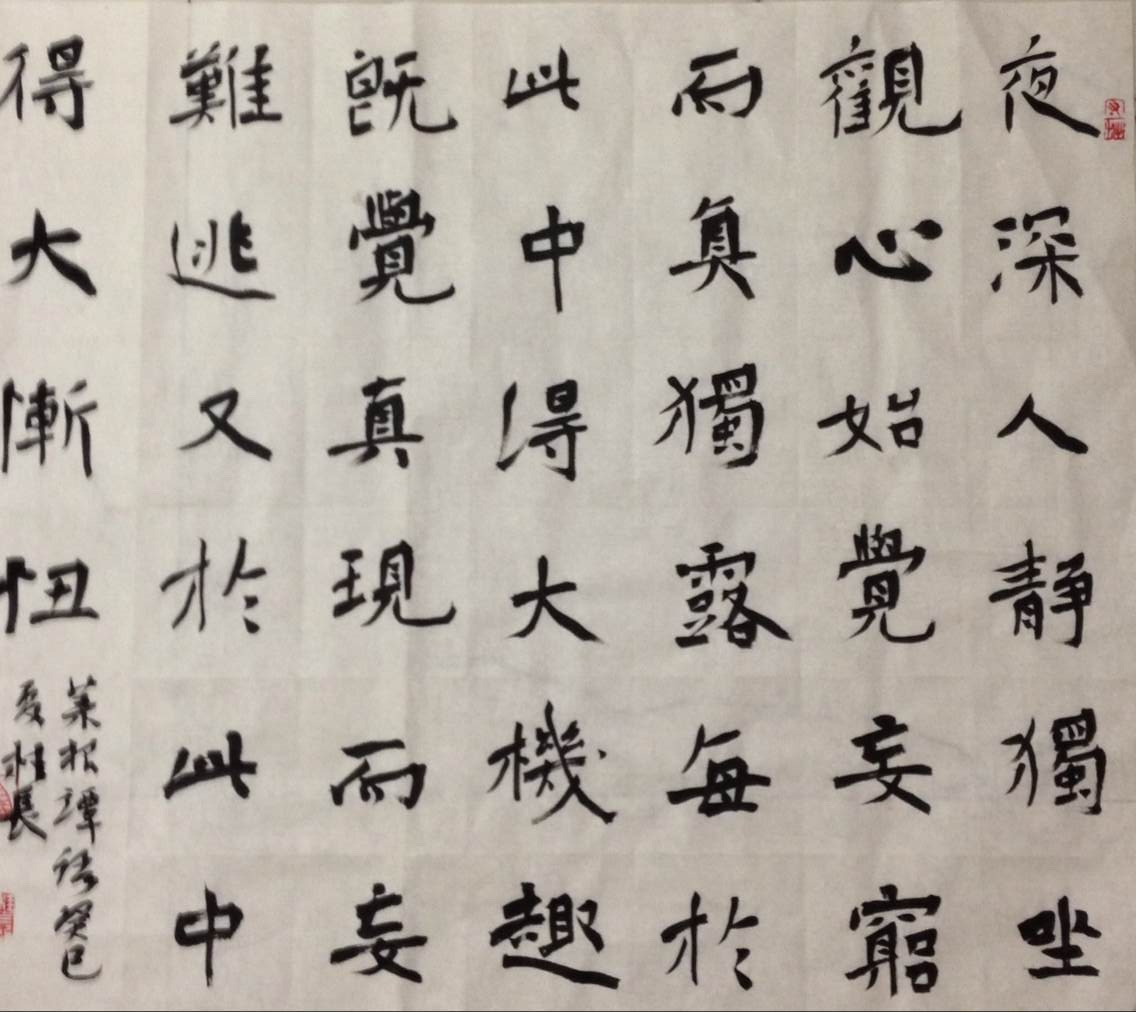 夜深人静獨坐
觀心始覺妄窮
而真獨露每於
此中得大機趣
既覺真現而妄
難逃又於此中
得大慚忸
菜根譚語癸巳
夏桂長